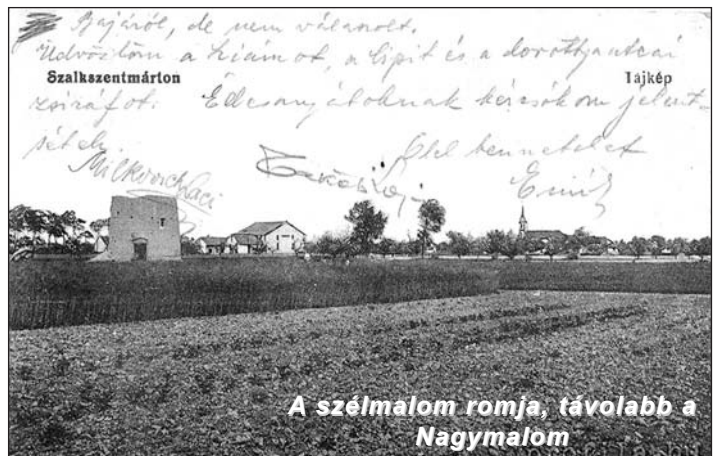 Bajáról, de nem válaszolt.
Üdvözlöm a hiúmot, a Lipit és a dorottyautcai
Szalkszentmárton Tájkép
zsiráfot. Édesanyátoknak kézcsókom jelent-
sétek.
Ölel benneteket
Milkovich Laci
Emil
A szélmalom romja, távolabb a
Nagymalom